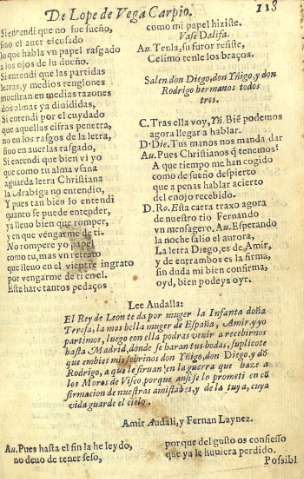 De Lope de Vega Carpio. 118
Si entendi que no fue sueño,
sino el auer escusado
lo que habla vn papel rasgado
a los ojos de su dueño.
Si entendi que las partidas
letras, y medios renglones
muestran en medias razones
dos almas ya diuididas,
Si entendi por el cuydado
que aquellas cifras penetra,
no en los rasgos de la letra,
sino en auerlas rasgado,
Si entendi que bien vi yo
que como tu alma vfana
aguarda letra Christiana
la Arabiga no entendio,
Y pues tan bien lo entendi
quanto se puede entender,
ya lleno bien que romper,
y en que vengarme de ti.
No rompere yo papel
como tu, mas vn retrato
que lleuo en el vientre ingrato
por vengarme de ti en el.
Este hare tantos pedaços
como mi papel hiziste.
Vase Dalifa.
Au. Tenla, su furor resiste,
Celimo tenle los braços.
Salen don Diego, don Yñigo, y don
Rodrigo hermanos todos
tres.
C. Tras ella voy, Yñ. Biē podemos
agora llegar a hablar.
D. Die. Tus manos nos manda dar
Au. Pues Christianos q̃ tenemos?
A que tiempo me han cogido
como de sueño despierto
que a penas hablar acierto
del enojo recebido.
D. Ro. Esta carta traxo agora
de nuestro tio Fernando
vn mensagero, Au. Esperando
la noche salio el aurora,
La letra Diego, es de Amir,
y de entrambos es la firma,
sin duda mi bien confirma,
oyd, bien podeys oyr.
Lee Audalla:
El Rey de Leon te da por muger la Infanta doña
Teresa, la mas bella muger de España, Amir, y yo
partimos, luego con ella podras venir a recebirnos
hasta Madrid, donde se haran tus bodas, suplicote
que embies mis sobrinos don Yñigo, don Diego, y dō
Rodrigo, a que le siruan en la guerra que haze a
los Moros de Viseo porque ansi se lo prometi en cō
firmacion de nuestras amistades, y de la tuya, cuya
vida guarde el cielo.
Amir Audali, y Fernan Laynez.
Au. Pues hasta el fin la he leydo,
no deuo de tener seso,
porque del gusto os confiesso
que ya le huuiera perdido.
Possibl